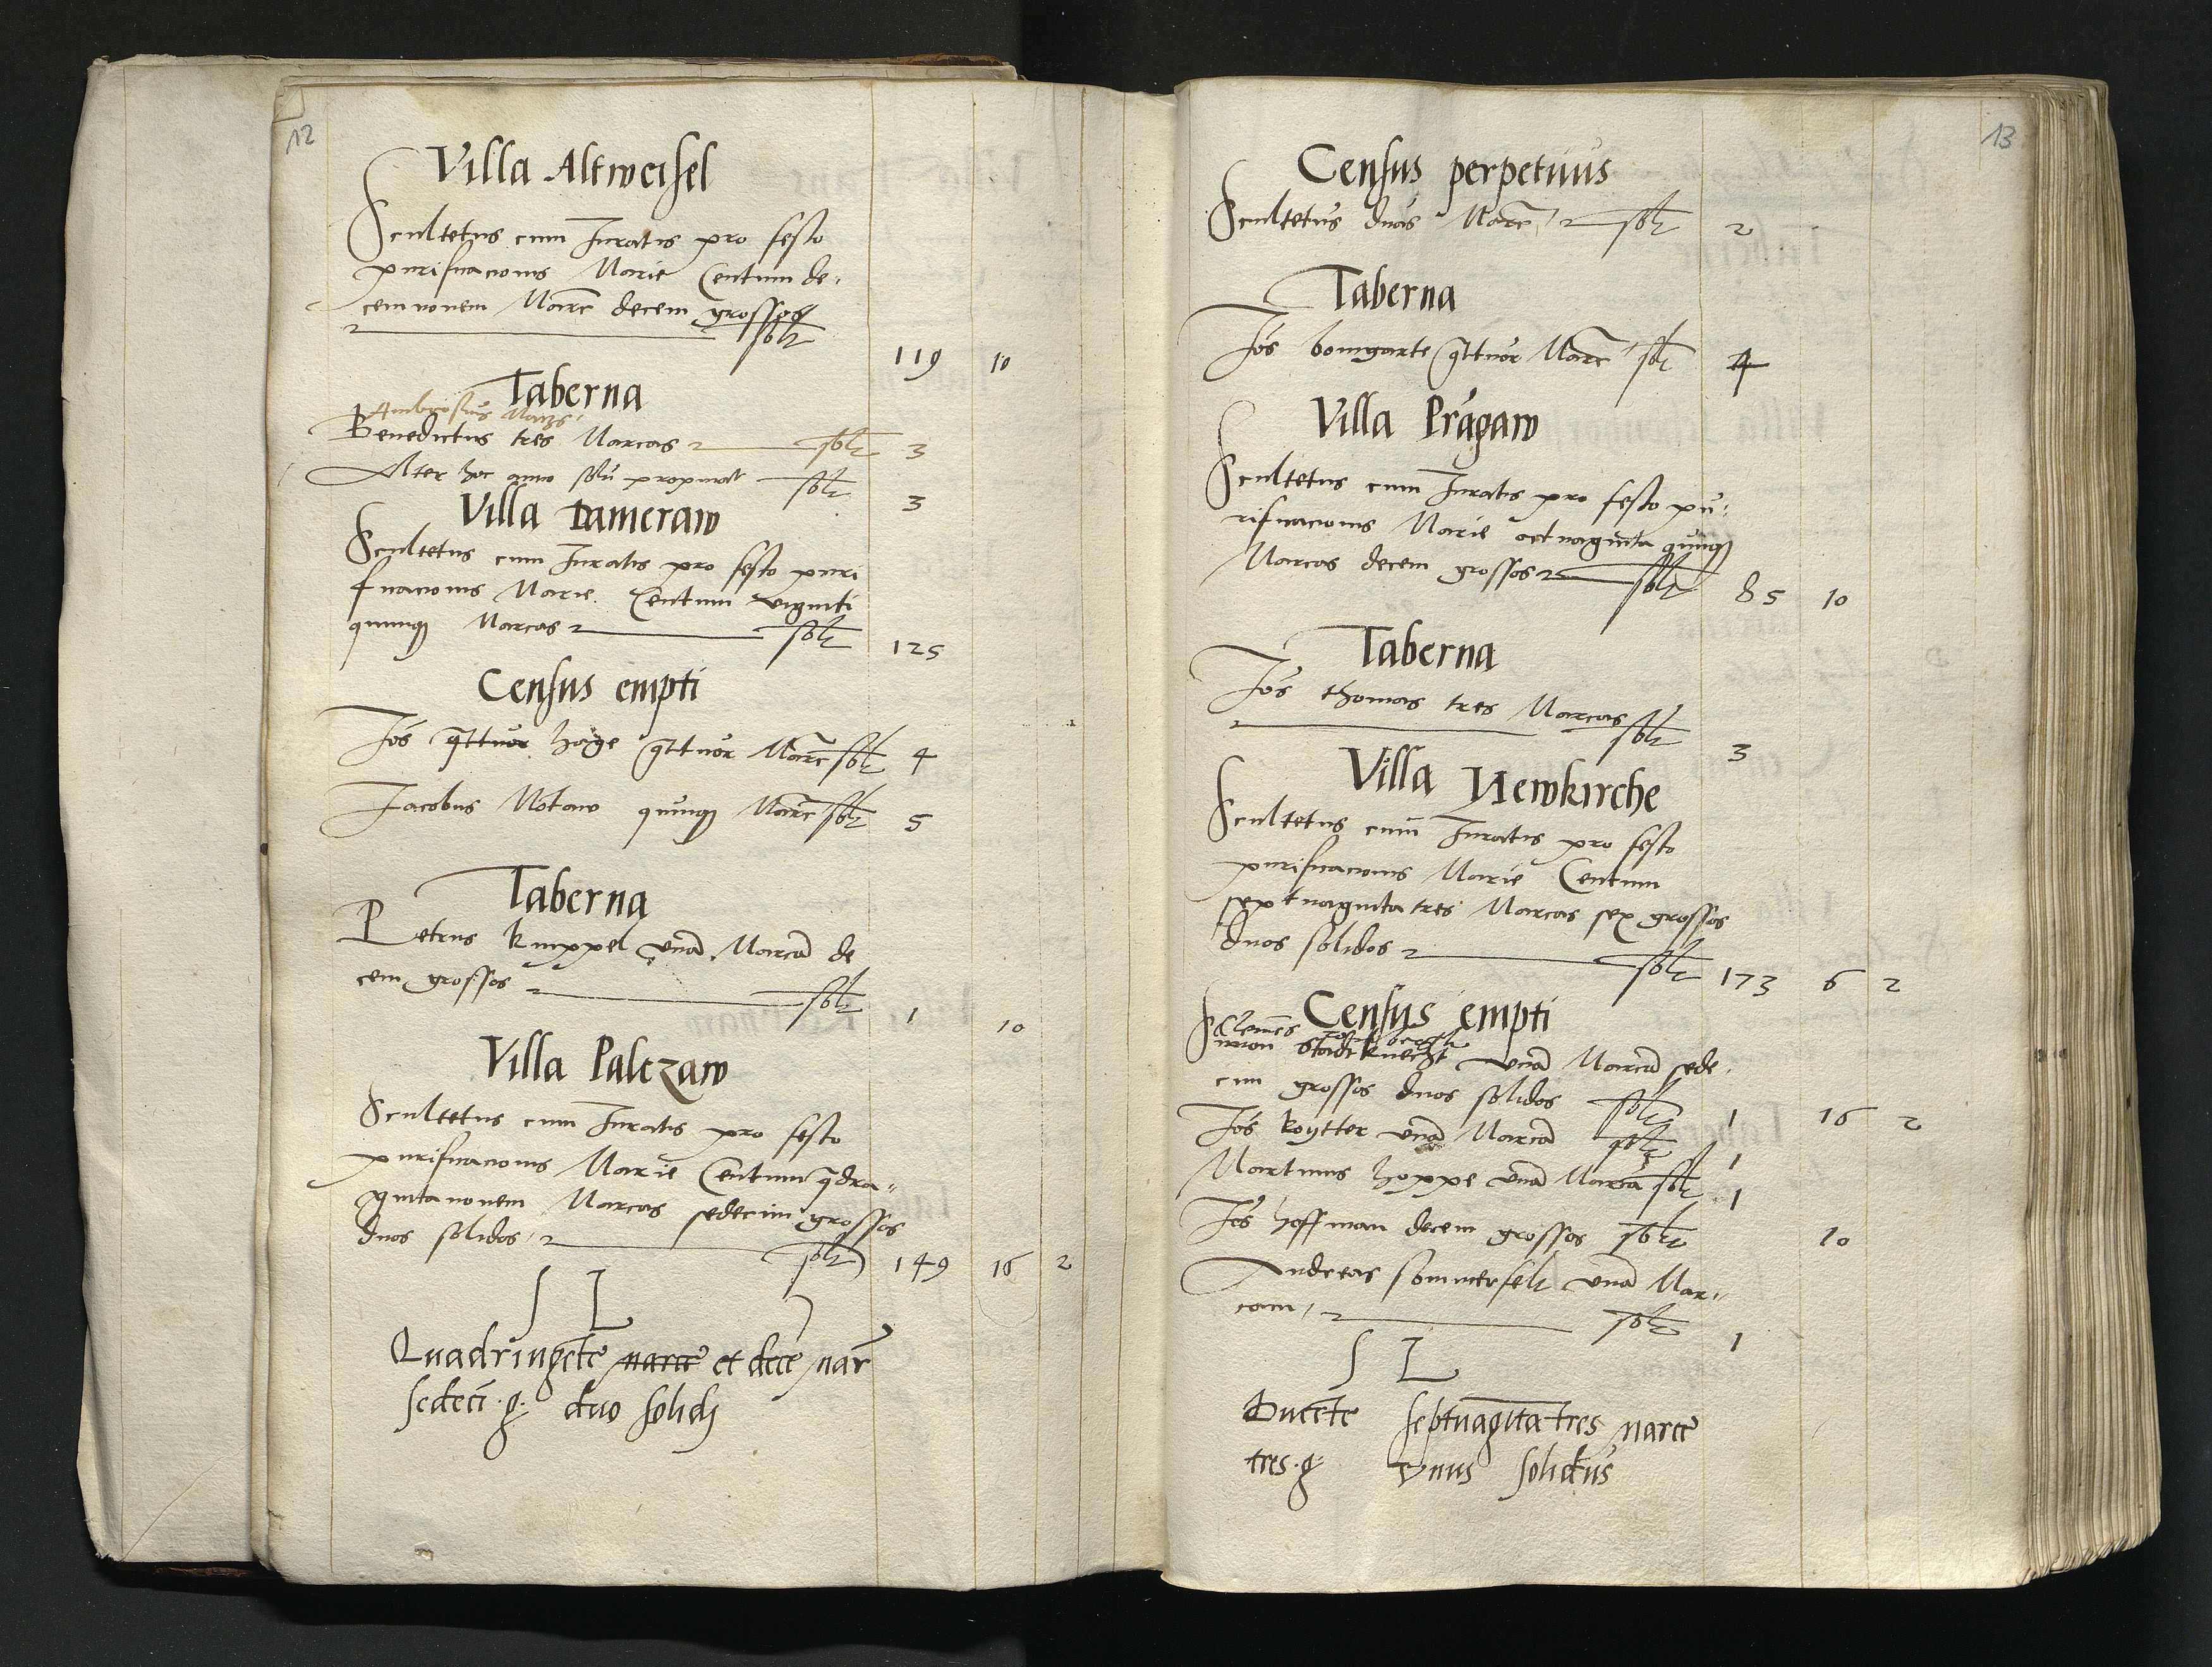 12
Villa Altweisel
Scultetus cum Juratis pro festo
purificacionis Marie Centum de-
cem nonem Marc decem grossos
solt 119 10
Taberna
Ambrosius
Benedictus tres Marcas solt 3
Alter hoc anno propinat solt 3
Villa Dameraw
Scultetus cum Juratis pro festo puri
ficacionis Marie Centum viginti
quinq Marcas solt 125
Census empti
Jos qttuor hage qttuor Marc solt 4
Jacobus Notaw quinq Marc solt 5
Taberna
Petrus knppel vna Marca de
cem grossos solt 1 10
Villa Palczaw
Scultetus cum Juratis pro festo
purificacionis Marie Centum qdra-
ginta nonem Marcas sedecim grossos
duos solidos solt 149 16 2
S L
Quadringete marce et dece mar
sedeci g duo solidi
13
Census perpetuus
Scultetus duas Marc solt 2
Taberna
Jos bomgarte qttuor Marc solt 4
Villa Pragaw
Scultetus cum Juratis pro festo pu-
rificacionis Marie octuaginta quinq
Marcas decem grossos solt 85 10
Taberna
Jos thomas tres Marcas
solt 3
Villa Newkirche
Scultetus cum Juratis pro festo
purificacionis Marie Centum
septuaginta tres Marcas sex grossos
duos solidos solt 173 6 2
Census empti
Clemes
Simon Stadtknecht vna Marca sede-
cim grossos duos solidos solt 1 16 2
Jos koytter vna Marca solt 1
Martinus hoppe vna Marca solt 1
Jos hoffman decem grossos solt 10
Andreas sommerfelt vna Mar-
cam solt 1
S L
Ducete septuaginta tres marce
tres g vnus solidus